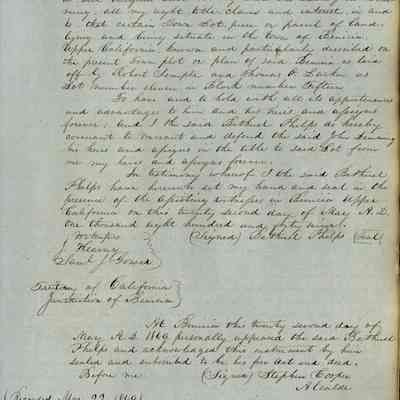 being; all my right title claim and interest, in and
to that certain Town Lot piece or parcel of land
lying and being situate in the town of Benicia
Upper California, known and particularly described on
the present Town plot or plan of said Benicia as laid
off by Robert Semple and Thomas O. Larkin as
Lot number eleven in Block number Fifteen
To have and to hold with all its appurtenances
and advantages to him and his heirs and assigns
forever; And I the said Bethuel Phelps do hereby
covenant to warrant and defend the said John
his heirs and assigns in the title to said Lot from
me my heirs and assigns forever.
In testimony whereof I the said Bethuel
Phelps have hereunto set my hand and seal in the
presence of the in Benicia Upper
California on this twenty second day of May A.D.
one thousand eight hundred and forty nine.
Witnesses (Signed) Bethuel Phelps (Seal)
Saml J.
Territory of California
Jurisdiction of Benicia
At Benicia this twenty second day of
May A.D. 1849 personally appeared the said Bethuel
Phelps and acknowledged this instrument by him
sealed and subscribed to be his free Act and deed.
Before me (Signed) Stephen Cooper
Alcalde